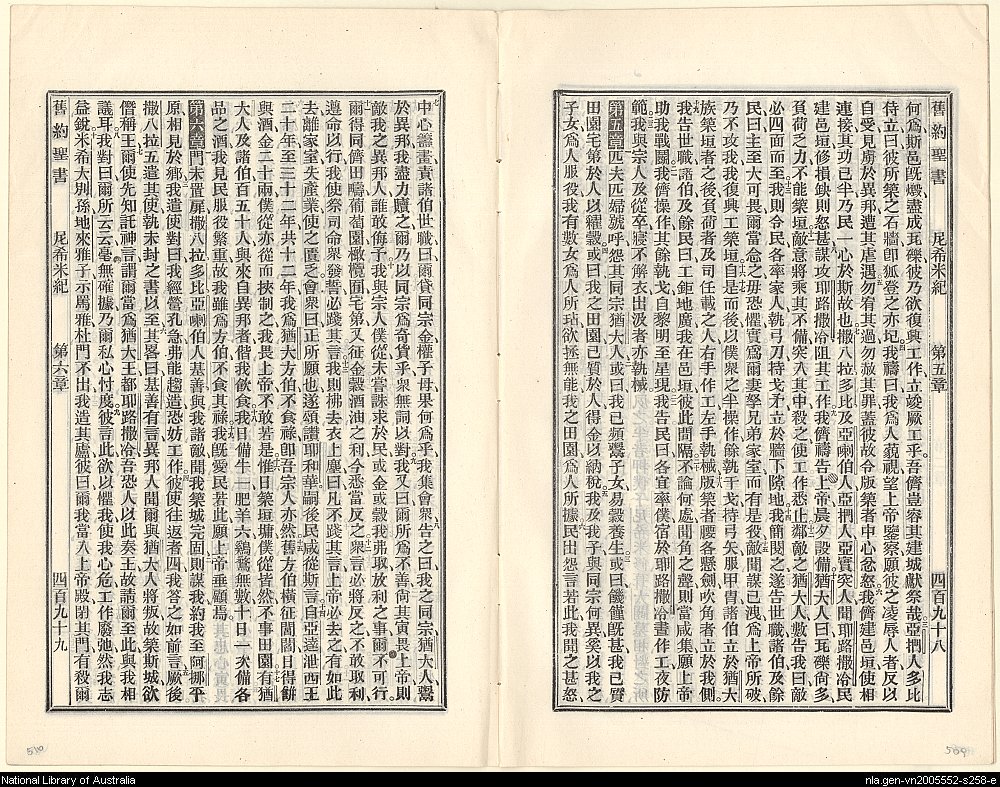 舊約聖書 尼希米紀 第五章 四百九十八
何爲斯邑旣燬盡成瓦礫彼乃欲復興工作立竣厥工乎吾儕豈容其建城獻祭哉亞捫人多比
待立曰彼所築之石牆卽狐登之亦圮我禱曰我爲人藐視望上帝鑒察願彼之凌辱人者反以
自受見虜於異邦遭其虐遇勿宥其過勿赦其罪蓋彼故令版築者中心忿怒我儕建邑垣使相
連接其功已半乃民一心於斯故也撒八拉多比及亞喇伯人亞捫人亞實突人聞耶路撒冷民
建邑垣修損缺則怒甚謀攻耶路撒冷阻其工作我儕禱告上帝晨夕設備猶大人曰瓦礫尙多
負荷乏力不能築垣敵意將乘其不備突入其中殺之使工作悉止鄰敵之猶大人數告我曰敵
必四面而至我則令民各率家人執弓刀持戈矛立於牆下隙地我簡閱之遂告世職諸伯及餘
民曰主至大可畏爾當念之毋恐懼實爲爾妻孥兄弟家室而有是役敵聞謀已洩爲上帝所破
乃不攻我我復興工築垣自是而後以僕衆之半操作餘執干戈持弓矢服甲冑諸伯立於猶大
族築垣者之後負荷者及司任載之人右手作工左手執械版築者腰各懸劍吹角者立於我側
我告世職諸伯及餘民曰工鉅地廣我在邑垣彼此間隔不論何處聞角之聲則當咸集願上帝
助我戰鬬我儕操作其餘執戈自黎明至星現我告民曰各宜率僕宿於耶路撒冷晝作工夜防
範我與友人及從卒寢不解衣出汲者亦執械
第五章 匹夫匹婦號呼怨其同宗猶大人或曰我已頻鬻子女易穀養生或曰饑饉旣甚我已質
田園宅第於人以糴穀或曰我之田園已質於人得金以納稅我及我子與同宗何異奚以我之
子女爲人服役我有數女爲人所玷欲拯無能我之田園爲人所據民出怨言若此我聞之甚怒
中心籌畫責諸伯世職曰爾貸同宗金權子母果何爲乎我集會衆告之曰我之同宗猶大人鬻
於異邦我盡力贖之爾乃以同宗爲奇貨乎衆無詞以對我又曰爾所爲不善尙其寅畏上帝則
敵我之異邦人誰敢侮予我與宗人僕從未嘗誅求於民或金或穀我弗取放利之事爾不可行
爾得同儕田疇葡萄園橄欖囿宅第又征金穀酒油之利今悉當反之衆言必將反之不敢取利
遵命以行我使祭司命衆發誓必踐其言我則拂去衣上塵曰凡不踐其言上帝必去之有如此
去離家室失產業使之匱乏會衆曰正所願也遂頌讚耶和華嗣後民咸從斯言自亞達泄西王
二十年至三十二年共十二年我爲猶大方伯不食祿卽吾宗人亦然舊方伯橫征閭閻日得餅
與酒金二十兩僕從亦從而挾制之我畏上帝不敢若是惟日築垣墉僕從皆然不事田園有猶
大人及諸伯百五十人與來自異邦者偕我飲食我日備牛一肥羊六鷄鶩無數十日一次備各
品之酒我見民服役繁重故我雖爲方伯不食其祿我旣愛民若此願上帝垂顧焉
第六章 門未置扉撒八拉多比亞喇伯人基善與我諸敵聞我築城完固則謀我約我至阿挪平
原相見於鄉我遣使對曰我經營孔急弗能趨造恐妨工作彼使往返者四我答之如前言厥後
撒八拉五遣其使執未封之書以至其畧曰基善有言異邦人聞爾與猶大人將叛故築斯城欲
僭稱王爾使先知託神言謂爾當爲猶大王都耶路撒冷吾恐人以此奏王故請爾至此與我相
議耳我對曰爾所云云毫無確據乃爾私心忖度彼言此欲以懼我使我心危工作廢弛然我志
益銳米希大別孫地來雅子示罵雅杜門不出我造其廬彼曰爾我當入上帝殿閉其門有殺爾
舊約聖書 尼希米紀 第六章 四百九十九
509
510
National Library of Australia
nla.gen-vn2005552-s258-e